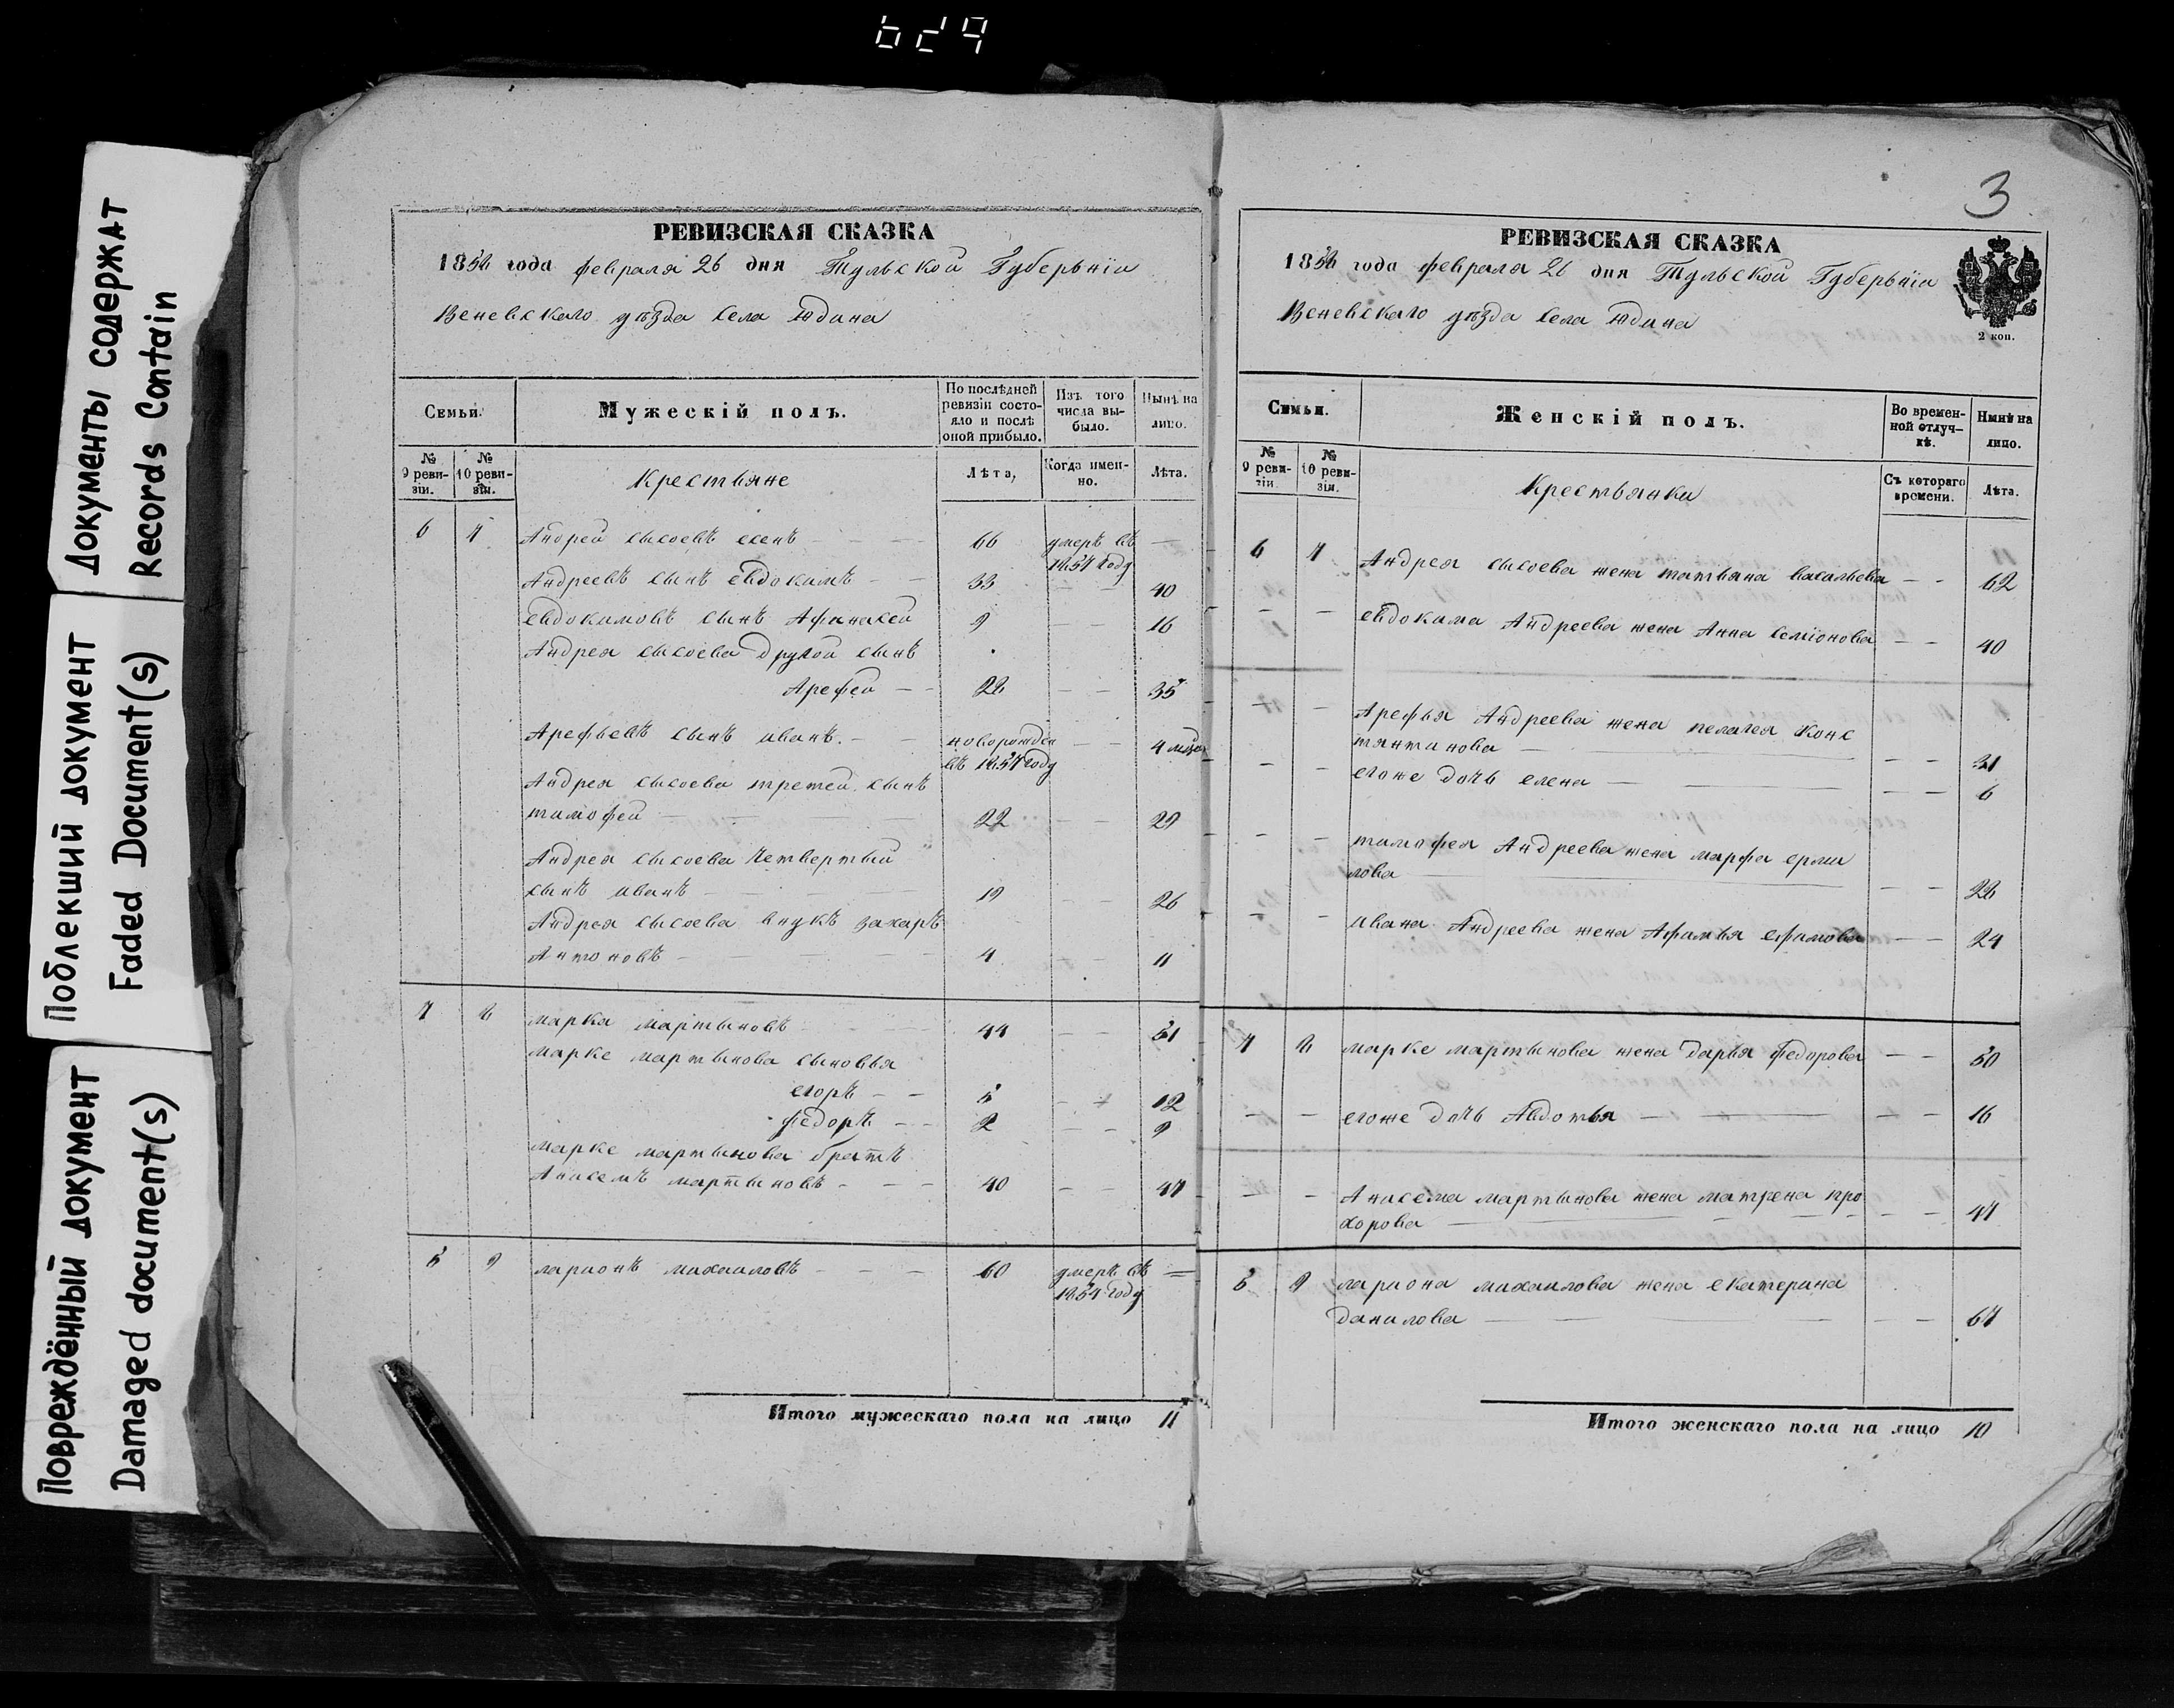 Документы содержат
Records Contain
Поблекший документ
Faded Document(s)
Повреждённый документ
Damaged document(s)
РЕВИЗСКАЯ СКАЗКА
1858 года февраля 26 дня Тульской Губерьніи
Веневскаго уѣзда Села
Семьи.
Мужескій полъ.
По послѣдней ревизіи состо-
яло и послѣ оной прибыло.
Изъ того числа вы-
было.
Нынѣ на лицо.
№ 9 реви-
зіи.
№ 10 реви-
зіи.
Крестьяне
Лѣта,
Когда имен-
но.
Лѣта.
6 7 Андрей сысоевъ 66 умеръ въ
1857 году
Андреевъ сынъ евдокимъ 33 40
евдокимовъ сынъ Афанасей 9 16
Андрея сысоева другой сынъ
Арефей 28 35
Арефьевъ сынъ иванъ новорожден 4
въ 1857 году
Андрея сысоева третей сынъ
тимофей 22 29
Андрея сысоева четвертый
сынъ иванъ 19 26
Андрея сысоева внукъ захаръ
Антоновъ 4 11
7 8 марка мартыновъ 44 51
марке мартынова сыновья
егоръ 5 12
федоръ 2 9
марке мартынова братъ
Анисемъ мартыновъ 40 47
8 9 ларионъ михаиловъ 60 умеръ въ
1854 году
Итого мужескаго пола на лицо 11
3
РЕВИЗСКАЯ СКАЗКА
1858 года февраля 26 дня Тульской Губерьніи
Веневскаго уѣзда Села
2 коп.
Семьи.
Женскій полъ.
Во времен-
ной отлуч-
кѣ.
Нынѣ на лицо.
№ 9 реви-
зіи.
№ 10 реви-
зіи.
Крестьянки
Съ котораго времени.
Лѣта.
6 7 Андрея сысоева жена татьяна васильева 62
евдокима Андреева жена Анна семіонова 40
Арефья Андреева жена пелагея конс
тянтинова 31
егоже дочь елена 6
тимофея Андреева жена марфа ерми
лова 28
ивана Андреева жена Афимья ефимова 24
7 8 марке мартынова жена дарья федорова 50
егоже дочь Авдотья 16
Анисема мартынова жена матрена про
хорова 47
8 9 лариона михаилова жена екатерина
данилова 67
Итого женскаго пола на лицо 10